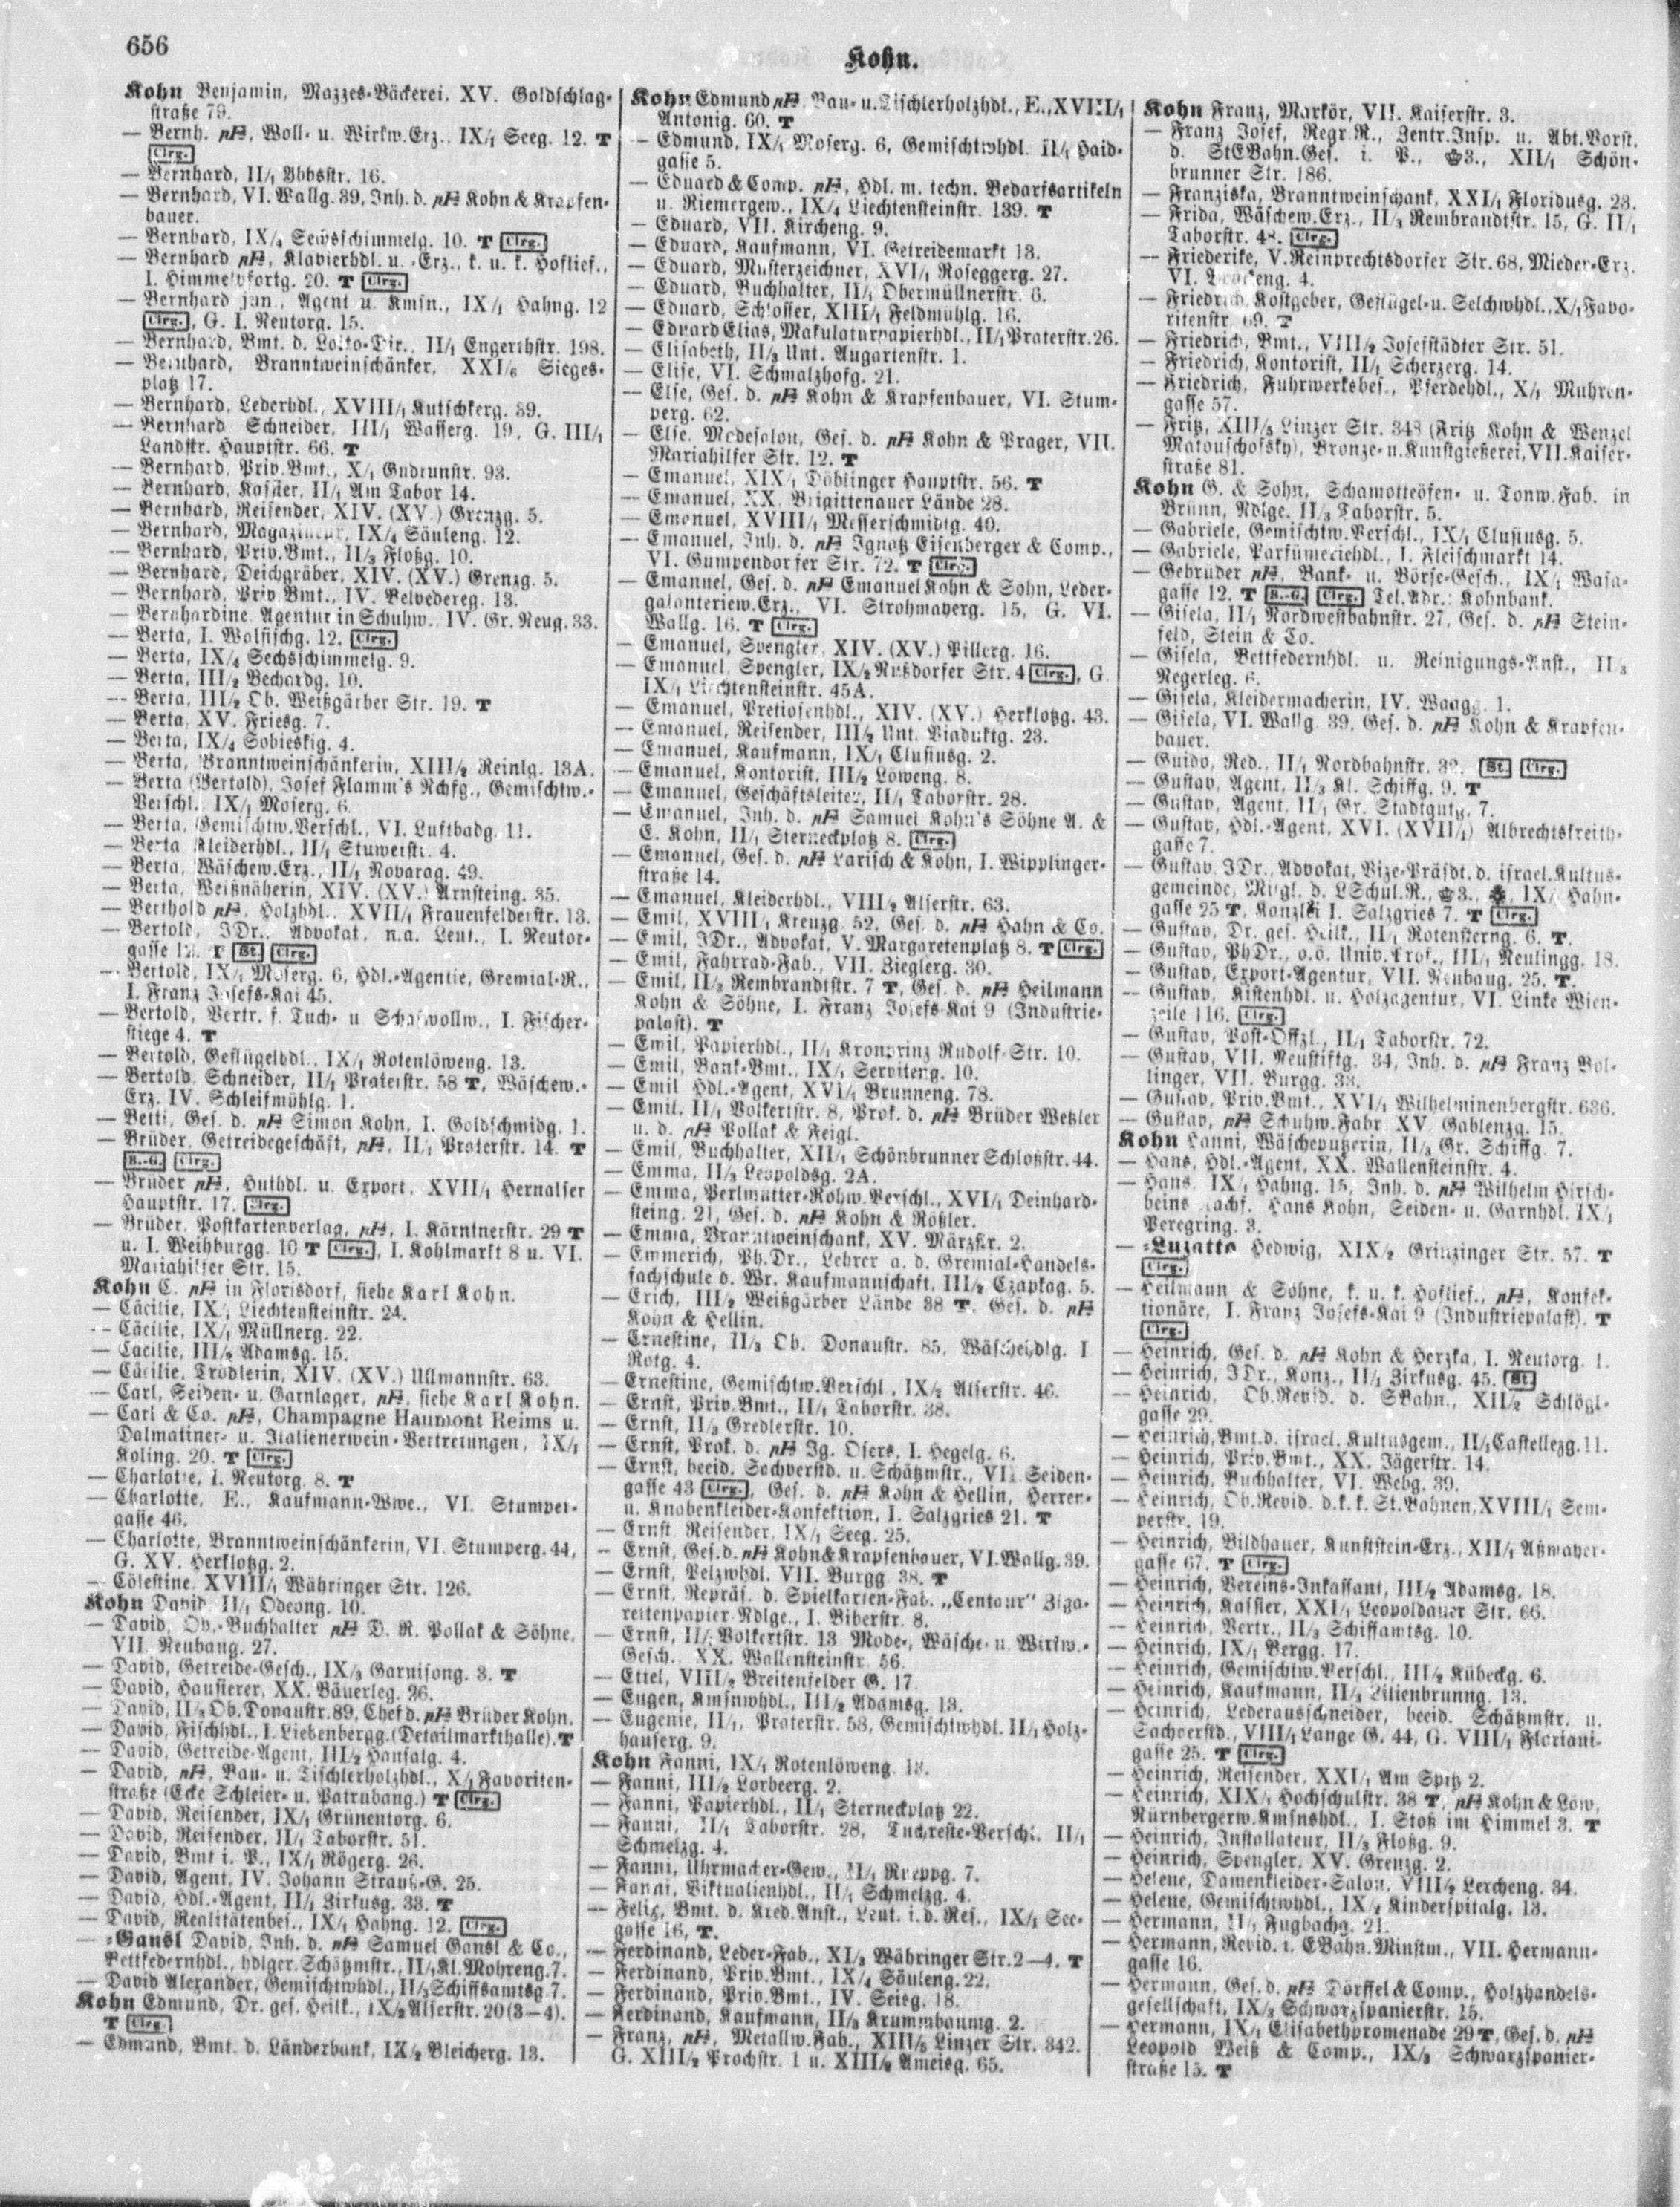 656
Kohn.
Kohn Benjamin, Mazzes-Bäckerei, XV. Goldschlag-
straße 79.
— Bernh. pH, Woll- u. Wirkw.Erz., IX/1 Seeg. 12. T
Clrg.
— Bernhard, II/1 Ybbsstr. 16.
— Bernhard, VI. Wallg. 39, Inh. d. pH Kohn & Krapfen-
bauer.
— Bernhard, IX/4 Sechsschimmelg. 10. T Clrg.
— Bernhard pH, Klavierhdl. u. -Erz., k. u. k. Hoflief.,
I. Himmelpfortg. 20. T Clrg.
— Bernhard jun., Agent u. Kmsn., IX/1 Hahng. 12
Clrg., G. I. Neutorg. 15.
— Bernhard, Bmt. d. Lotto-Dir., II/1 Engerthstr. 198.
— Bernhard, Branntweinschänker, XXI/6 Sieges-
platz 17.
— Bernhard, Lederhdl., XVIII/1 Kutschkerg. 39.
— Bernhard Schneider, III/1 Wasserg. 19, G. III/1
Landstr. Hauptstr. 66. T
— Bernhard, Priv.Bmt., X/1 Gudrunstr. 93.
— Bernhard, Kassier, II/1 Am Tabor 14.
— Bernhard, Reisender, XIV. (XV.) Grenzg. 5.
— Bernhard, Magazineur, IX/4 Säuleng. 12.
— Bernhard, Priv.Bmt., II/3 Floßg. 10.
— Bernhard, Deichgräber, XIV. (XV.) Grenzg. 5.
— Bernhard, Priv.Bmt., IV. Belvedereg. 13.
— Bernhardine, Agentur in Schuhw., IV. Gr. Neug. 33.
— Berta, I. Wolfischg. 12. Clrg.
— Berta, IX/4 Sechsschimmelg. 9.
— Berta, III/2 Bechardg. 10.
— Berta, III/2 Ob. Weißgärber Str. 19. T
— Berta, XV. Friesg. 7.
— Berta, IX/4 Sobieskig. 4.
— Berta, Branntweinschänkerin, XIII/2 Reinlg. 13A.
— Berta (Bertold), Josef Flamm's Nchfg., Gemischtw.-
Verschl., IX/1 Moserg. 6.
— Berta, Gemischtw.Verschl., VI. Luftbadg. 11.
— Berta Kleiderhdl., II/1 Stuwerstr. 4.
— Berta, Wäschew.Erz., II/1 Novarag. 49.
— Berta, Weißnäherin, XIV. (XV.) Arnsteing. 35.
— Berthold pH, Holzhdl., XVII/1 Frauenfelderstr. 13.
— Bertold, JDr., Advokat, n.a. Leut., I. Neutor-
gasse T St. Clrg.
— Bertold, IX/1 Moserg. 6, Hdl.-Agentie, Gremial-R.,
I. Franz Josefs-Kai 45.
— Bertold, Vertr. f. Tuch- u. Schafwollw., I. Fischer-
stiege 4. T
— Bertold, Geflügelhdl., IX/1 Rotenlöweng. 13.
— Bertold, Schneider, II/1 Praterstr. 58 T, Wäschew.-
Erz. IV. Schleifmühlg. 1.
— Betti, Ges. d. pH Simon Kohn, I. Goldschmidg. 1.
— Brüder, Getreidegeschäft, pH, II/1 Praterstr. 14. T
B.-G. Clrg.
— Brüder pH, Huthdl. u. Export, XVII/1 Hernalser
Hauptstr. 17. Clrg.
— Brüder, Postkartenverlag, pH, I. Kärntnerstr. 29 T
u. I. Weihburgg. 10 T Clrg., I. Kohlmarkt 8 u. VI.
Mariahilfer Str. 15.
Kohn C. pH in Florisdorf, siehe Karl Kohn.
— Cäcilie, IX/1 Liechtensteinstr. 24.
— Cäcilie, IX/1 Müllnerg. 22.
— Cäcilie, III/2 Adamsg. 15.
— Cäcilie, Trödlerin, XIV. (XV.) Ullmannstr. 63.
— Carl, Seiden- u. Garnlager, pH, siehe Karl Kohn.
— Carl & Co. pH, Champagne Haumont Reims u.
Dalmatiner- u. Italienerwein-Vertretungen, IX/1
Koling. 20. T Clrg.
— Charlotte, I. Neutorg. 8. T
— Charlotte, E., Kaufmann-Wwe., VI. Stumper-
gasse 46.
— Charlotte, Branntweinschänkerin, VI. Stumperg. 44,
G. XV. Herklotzg. 2.
— Cölestine, XVIII/1 Währinger Str. 126.
Kohn David, II/1 Odeong. 10.
— David, Ob.-Buchhalter pH D. R. Pollak & Söhne,
VII. Neubaug. 27.
— David, Getreide-Gesch., IX/3 Garnisong. 3. T
— David, Hausierer, XX. Bäuerleg. 26.
— David, II/3 Ob. Donaustr. 89, Chef d. pH Brüder Kohn.
— David, Fischhdl., I. Liebenbergg. (Detailmarkthalle). T
— David, Getreide-Agent, III/2 Hansalg. 4.
— David, pH, Bau- u. Tischlerholzhdl., X/1 Favoriten-
straße (Ecke Schleier- u. Patrubang.) T Clrg.
— David, Reisender, IX/1 Grünentorg. 6.
— David, Reisender, II/1 Taborstr. 51.
— David, Bmt i. P., IX/1 Rögerg. 26.
— David, Agent, IV. Johann Strauß-G. 25.
— David, Hdl.-Agent, II/1 Zirkusg. 33. T
— David, Realitätenbes., IX/1 Hahng. 12. Clrg.
— -Gansl David, Inh. d. pH Samuel Gansl & Co.,
Bettfedernhdl., hdlger. Schätzmstr., II/1 Kl. Mohreng. 7.
— David Alexander, Gemischtwhdl., II/3 Schiffsamtsg. 7.
Kohn Edmund, Dr. ges. Heilk., IX/3 Alserstr. 20 (3—4).
T Clrg.
— Edmund, Bmt. d. Länderbank, IX/2 Bleicherg. 13.
Kohn Edmund pH, Bau- u. Tischlerholzhdl., E., XVIII/1
Antonig. 60. T
— Edmund, IX/1 Moserg. 6, Gemischtwhdl. II/1 Haid-
gasse 5.
— Eduard & Comp. pH, Hdl. m. techn. Bedarfsartikeln
u. Riemergew., IX/4 Liechtensteinstr. 139. T
— Eduard, VII. Kircheng. 9.
— Eduard, Kaufmann, VI. Getreidemarkt 13.
— Eduard, Musterzeichner, XVI/1 Roseggerg. 27.
— Eduard, Buchhalter, II/1 Obermüllnerstr. 6.
— Eduard, Schlosser, XIII/1 Feldmühlg. 16.
— Eduard Elias, Makulaturpapierhdl., II/1 Praterstr. 26.
— Elisabeth, II/3 Unt. Augartenstr. 1.
— Elise, VI. Schmalzhofg. 21.
— Else, Ges. d. pH Kohn & Krapfenbauer, VI. Stum-
perg. 62.
— Else, Modesalon, Ges. d. pH Kohn & Prager, VII.
Mariahilfer Str. 12. T
— Emanuel, XIX/1 Döblinger Hauptstr. 56. T
— Emanuel, XX. Brigittenauer Lände 28.
— Emanuel, XVIII/1 Messerschmidtg. 40.
— Emanuel, Inh. d. pH Ignatz Eisenberger & Comp.,
VI. Gumpendorfer Str. 72. T Clrg.
— Emanuel, Ges. d. pH Emanuel Kohn & Sohn, Leder-
galanteriew.Erz., VI. Strohmayerg. 15, G. VI.
Wallg. 16. T Clrg.
— Emanuel, Spengler, XIV. (XV.) Pillerg. 16.
— Emanuel, Spengler, IX/2 Nußdorfer Str. 4 Clrg., G.
IX/1 Liechtensteinstr. 45A.
— Emanuel, Pretiosenhdl., XIV. (XV.) Herklotzg. 43.
— Emanuel, Reisender, III/2 Unt. Viaduktg. 23.
— Emanuel, Kaufmann, IX/1 Clusiusg. 2.
— Emanuel, Kontorist, III/2 Löweng. 8.
— Emanuel, Geschäftsleiter, II/1 Taborstr. 28.
— Emanuel, Inh. d. pH Samuel Kohn's Söhne A. &
E. Kohn, II/1 Sterneckplatz 8. Clrg.
— Emanuel, Ges. d. pH Larisch & Kohn, I. Wipplinger-
straße 14.
— Emanuel, Kleiderhdl., VIII/2 Alserstr. 63.
— Emil, XVIII/1 Kreuzg. 52, Ges. d. pH Hahn & Co.
— Emil, JDr., Advokat, V. Margaretenplatz 8. T Clrg.
— Emil, Fahrrad-Fab., VII. Zieglerg. 30.
— Emil, II/3 Rembrandtstr. 7 T, Ges. d. pH Heilmann
Kohn & Söhne, I. Franz Josefs-Kai 9 (Industrie-
palast). T
— Emil, Papierhdl., II/1 Kronprinz Rudolf-Str. 10.
— Emil, Bank-Bmt., IX/1 Serviteng. 10.
— Emil Hdl.-Agent, XVI/1 Brunneng. 78.
— Emil, II/1 Volkertstr. 8, Prok. d. pH Brüder Wetzler
u. d. pH Pollak & Feigl.
— Emil, Buchhalter, XII/1 Schönbrunner Schloßstr. 44.
— Emma, II/3 Leopoldsg. 2A.
— Emma, Perlmutter-Rohw.Verschl., XVI/1 Deinhard-
steing. 21, Ges. d. pH Kohn & Rößler.
— Emma, Branntweinschank, XV. Märzstr. 2.
— Emmerich, Ph.Dr., Lehrer a. d. Gremial-Handels-
fachschule d. Wr. Kaufmannschaft, III/2 Czapkag. 5.
— Erich, III/2 Weißgärber Lände 38 T, Ges. d. pH
Kohn & Hellin.
— Ernestine, II/3 Ob. Donaustr. 85, Wäschehdlg. I
Rotg. 4.
— Ernestine, Gemischtw.Verschl., IX/2 Alserstr. 46.
— Ernst, Priv.Bmt., II/1 Taborstr. 38.
— Ernst, II/3 Gredlerstr. 10.
— Ernst, Prok. d. pH Ig. Osers, I. Hegelg. 6.
— Ernst, beeid. Sachverstd. u. Schätzmstr., VII. Seiden-
gasse 43 Clrg., Ges. d. pH Kohn & Hellin, Herren-
u. Knabenkleider-Konfektion, I. Salzgries 21. T
— Ernst, Reisender, IX/1 Seeg. 25.
— Ernst, Ges. d. pH Kohn & Krapfenbauer, VI. Wallg. 39.
— Ernst, Pelzwhdl. VII. Burgg. 38. T
— Ernst, Repräs. d. Spielkarten-Fab. „Centaur" Ziga-
rettenpapier-Ndlge., I. Biberstr. 8.
— Ernst, II/1 Volkertstr. 13 Mode-, Wäsche- u. Wirkw.-
Gesch., XX. Wallensteinstr. 56.
— Ettel, VIII/2 Breitenfelder G. 17
— Eugen, Kmsnwhdl., III/2 Adamsg. 13.
— Eugenie, II/1, Praterstr. 58, Gemischtwhdl. II/1 Holz-
hauserg. 9.
Kohn Fanni, IX/1 Rotenlöweng. 13.
— Fanni, III/2 Lorbeerg. 2.
— Fanni, Papierhdl., II/1 Sterneckplatz 22.
— Fanni, II/1 Taborstr. 28, Tuchreste-Verschl. II/1
Schmelzg. 4.
— Fanni, Uhrmacher-Gew., II/1 7.
— Fanni, Viktualienhdl., II/1 Schmelzg. 4.
— Felix, Bmt. d. Kred.Anst., Leut. i.d. Res., IX/1 See-
gasse 16, T.
— Ferdinand, Leder-Fab., XI/3 Währinger Str. 2—4. T
— Ferdinand, Priv.Bmt., IX/4 Säuleng. 22.
— Ferdinand, Priv.Bmt., IV. Seisg. 18.
— Ferdinand, Kaufmann, II/3 Krummbaumg. 2.
— Franz, pH, Metallw.Fab., XIII/5 Linzer Str. 342.
G. XIII/2 Prochstr. 1 u. XIII/2 Ameisg. 65.
Kohn Franz, Markör, VII. Kaiserstr. 3.
— Franz Josef, Regr.R., Zentr.Insp. u. Abt.Vorst.
d. StEBahn.Ges. i. P., 3., XII/1 Schön-
brunner Str. 186.
— Franziska, Branntweinschank, XXI/1 Floridusg. 23.
— Frida, Wäschew.Erz., II/3 Rembrandtstr. 15, G. II/1
Taborstr. Clrg.
— Friederike, V. Reinprechtsdorfer Str. 68, Mieder-Erz.
VI. 4.
— Friedrich, Kostgeber, Geflügel- u. Selchwhdl., X/1 Favo-
ritenstr. 69. T
— Friedrich, Bmt., VIII/2 Josefstädter Str. 51.
— Friedrich, Kontorist, II/1 Scherzerg. 14.
— Friedrich, Fuhrwerksbes., Pferdehdl., X/1 Muhren-
gasse 57.
— Fritz, XIII/3 Linzer Str. 348 (Fritz Kohn & Wenzel
Matouschofsky), Bronze- u. Kunstgießerei, VII. Kaiser-
straße 81.
Kohn G. & Sohn, Schamotteöfen- u. Tonw.Fab. in
Brünn, Ndlge. II/3 Taborstr. 5.
— Gabriele, Gemischtw.Verschl., IX/1 Clusiusg. 5.
— Gabriele, Parfümeriehdl., I. Fleischmarkt 14.
— Gebrüder pH, Bank- u. Börse-Gesch., IX/1 Wasa-
gasse 12. T B.-G. Clrg. Tel.Adr.: Kohnbank.
— Gisela, II/1 Nordwestbahnstr. 27, Ges. d. pH Stein-
feld, Stein & Co.
— Gisela, Bettfedernhdl. u. Reinigungs-Anst., II/3
Negerleg. 6.
— Gisela, Kleidermacherin, IV. Waagg. 1.
— Gisela, VI. Wallg. 39, Ges. d. pH Kohn & Krapfen-
bauer.
— Guido, Red., II/1 Nordbahnstr. 32. St. Clrg.
— Gustav, Agent, II/3 Kl. Schiffg. 9. T
— Gustav, Agent, II/1 Gr. Stadtgutg. 7.
— Gustav, Hdl.-Agent, XVI. (XVII/1) Albrechtskreith-
gasse 7.
— Gustav, JDr., Advokat, Vize-Präsdt. d. israel. Kultus-
gemeinde, Mitgl. d. LSchul.R., 3., IX/1 Hahn-
gasse 25 T, Kanzlei I. Salzgries 7. T Clrg.
— Gustav, Dr. ges. Heilk., II/1 Rotensterng. 6. T.
— Gustav, PhDr., o.ö. Univ.Prof., III/1 Neulingg. 18.
— Gustav, Export-Agentur, VII. Neubaug. 25. T.
— Gustav, Kistenhdl. u. Holzagentur, VI. Linke Wien-
zeile 116. Clrg.
— Gustav, Post-Offzl., II/1 Taborstr. 72.
— Gustav, VII. Neustiftg. 34, Inh. d. pH Franz Bol-
linger, VII. Burgg. 33.
— Gustav, Priv.Bmt., XVI/1 Wilhelminenbergstr. 636.
— Gustav, pH Schuhw.Fabr. XV. Gablenzg. 15.
Kohn Hanni, Wäscheputzerin, II/3 Gr. Schiffg. 7.
— Hans, Hdl.-Agent, XX. Wallensteinstr. 4.
— Hans, IX/1 Hahng. 15, Inh. d. pH Wilhelm Hirsch-
beins Nachf. Hans Kohn, Seiden- u. Garnhdl. IX/1
Peregring. 3.
— -Luzatto Hedwig, XIX/2 Grinzinger Str. 57. T
Clrg.
— Heilmann & Söhne, k. u. k. Hoflief., pH, Konfek-
tionäre, I. Franz Josefs-Kai 9 (Industriepalast). T
Clrg.
— Heinrich, Ges. d. pH Kohn & Herzka, I. Neutorg. 1.
— Heinrich, JDr., Konz., II/1 Zirkusg. 45. St.
— Heinrich, Ob.Revid. d. SBahn., XII/2 Schlögl-
gasse 29.
— Heinrich, Bmt. d. israel. Kultusgem., II/1 Castellezg. 11.
— Heinrich, Priv.Bmt., XX. Jägerstr. 14.
— Heinrich, Buchhalter, VI. Webg. 39.
— Heinrich, Ob.Revid. d. k. k. St.Bahnen, XVIII/1 Sem-
perstr. 19.
— Heinrich, Bildhauer, Kunststein-Erz., XII/1 Aßmayer-
gasse 67. T Clrg.
— Heinrich, Vereins-Inkassant, III/2 Adamsg. 18.
— Heinrich, Kassier, XXI/1 Leopoldauer Str. 66.
— Heinrich, Vertr., II/3 Schiffamtsg. 10.
— Heinrich, IX/1 Bergg. 17.
— Heinrich, Gemischtw.Verschl., III/2 Kübeckg. 6.
— Heinrich, Kaufmann, II/3 Lilienbrunng. 13.
— Heinrich, Lederausschneider, beeid. Schätzmstr. u.
Sachverstd., VIII/1 Lange G. 44, G. VIII/1 Floriani-
gasse 25. T Clrg.
— Heinrich, Reisender, XXI/1 Am Spitz 2.
— Heinrich, XIX/1 Hochschulstr. 38 T, pH Kohn & Löw,
Nürnbergerw.Kmsnshdl., I. Stoß im Himmel 3. T
— Heinrich, Installateur, II/3 Floßg. 9.
— Heinrich, Spengler, XV. Grenzg. 2.
— Helene, Damenkleider-Salon, VIII/2 Lercheng. 34.
— Helene, Gemischtwhdl., IX/2 Kinderspitalg. 13.
— Hermann, II/1 Fugbachg. 21.
— Hermann, Revid. i. EBahn.Minstm., VII. Hermann-
gasse 16.
— Hermann, Ges. d. pH Dörffel & Comp., Holzhandels-
gesellschaft, IX/3 Schwarzspanierstr. 15.
— Hermann, IX/1 Elisabethpromenade 29 T, Ges. d. pH
Leopold Weiß & Comp., IX/3 Schwarzspanier-
straße 15. T